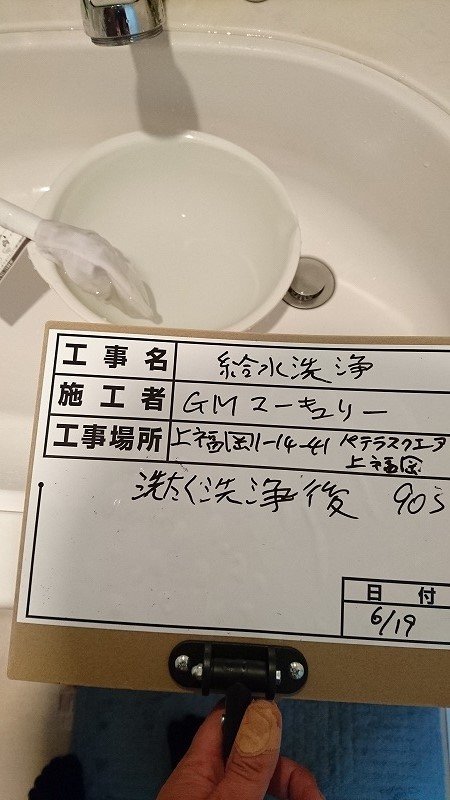 工事名 給水洗浄
施工者 GMマーキュリー
工事場所 上福岡1-14-41 パテラスクエア
上福岡
洗たく洗浄後 905
日付
6/19